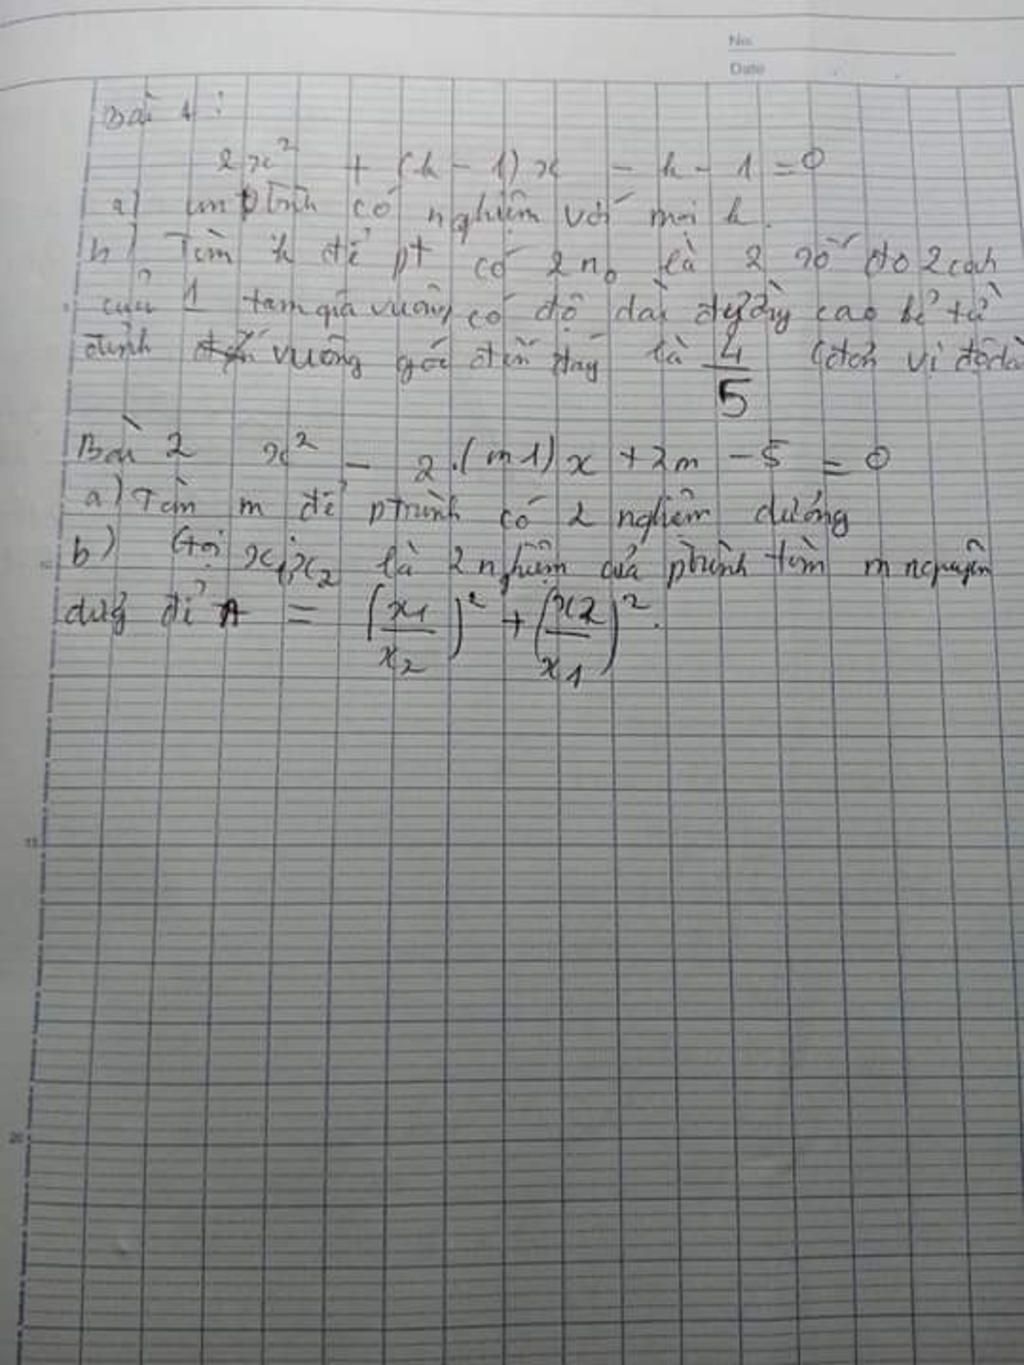 No.
Date
Bài 1:
2x² + (k - 1)x - k - 1 = 0
a) cm ptrình có nghiệm với mọi k.
b) Tìm k để pt có 2 n₀ là 2 số đo 2 cạnh
của 1 tam giá vuông có độ dài đường cao kẻ từ
đỉnh vuông góc đến đáy là 4/5 (đơn vị độ dà
Bài 2 x² - 2.(m1)x + 2m - 5 = 0
a) Tìm m để ptrình có 2 nghiệm dương
b) Gọi x₁;x₂ là 2 nghiệm của ptrình tìm m nguyên
dương để A = (x₁/x₂)² + (x₂/x₁)².
15
20